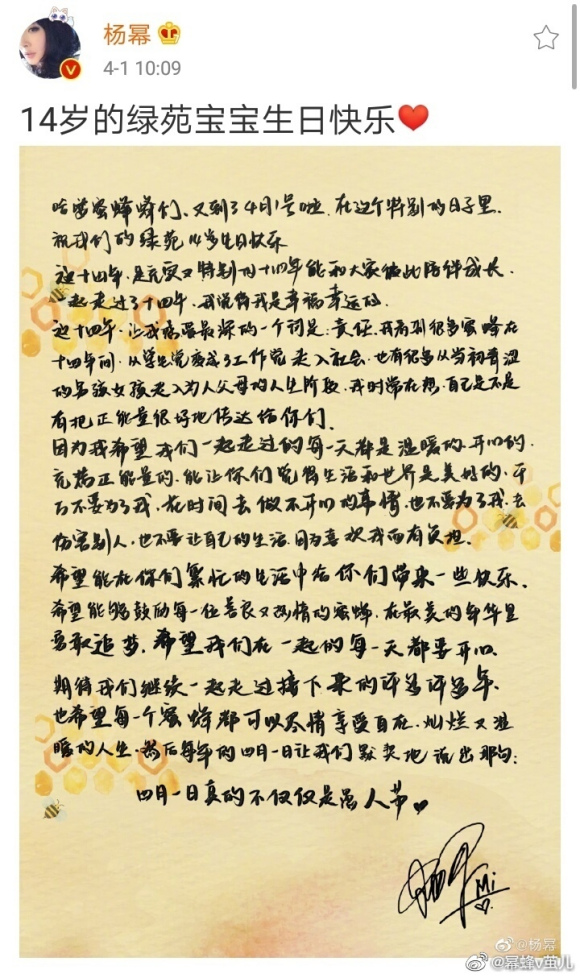 杨幂
4-1 10:09
14岁的绿苑宝宝生日快乐❤
哈喽蜜蜂蜂们、又到了4月1号啦、在这个特别的日子里、
祝我们的绿苑14岁生日快乐
这十四年、是充实又特别的十四年能和大家彼此陪伴成长、
一起走过了十四年、我觉得我是幸福幸运的
这十四年、让我感受最深的一个词是:责任、我看到很多蜜蜂在
十四年间、从学生党变成了工作党走入社会、也有很多从当初青涩
的男孩女孩走入为人父母的人生阶段、我时常在想、自己是不是
有把正能量很好地传达给你们、
因为我希望我们一起走过的每一天都是温暖的、开心的、
充满正能量的、能让你们觉得生活和世界是美好的、千
万不要为了我、花时间去做不开心的事情、也不要为了我、去
伤害别人、也不要让自己的生活、因为喜欢我而有负担、
希望能在你们繁忙的生活中给你们带来一些快乐、
希望能够鼓励每一位善良又热情的蜜蜂、在最美的年华里
勇敢追梦、希望我们在一起的每一天都要开心、
期待我们继续一起走过接下来的许多许多年、
也希望每一个蜜蜂都可以尽情享受自在、灿烂又温
暖的人生、然后每年的四月一日让我们默契地说出那句:
四月一日真的不仅仅是愚人节♥
杨幂 Mi
@杨幂
@幂蜂v茧儿